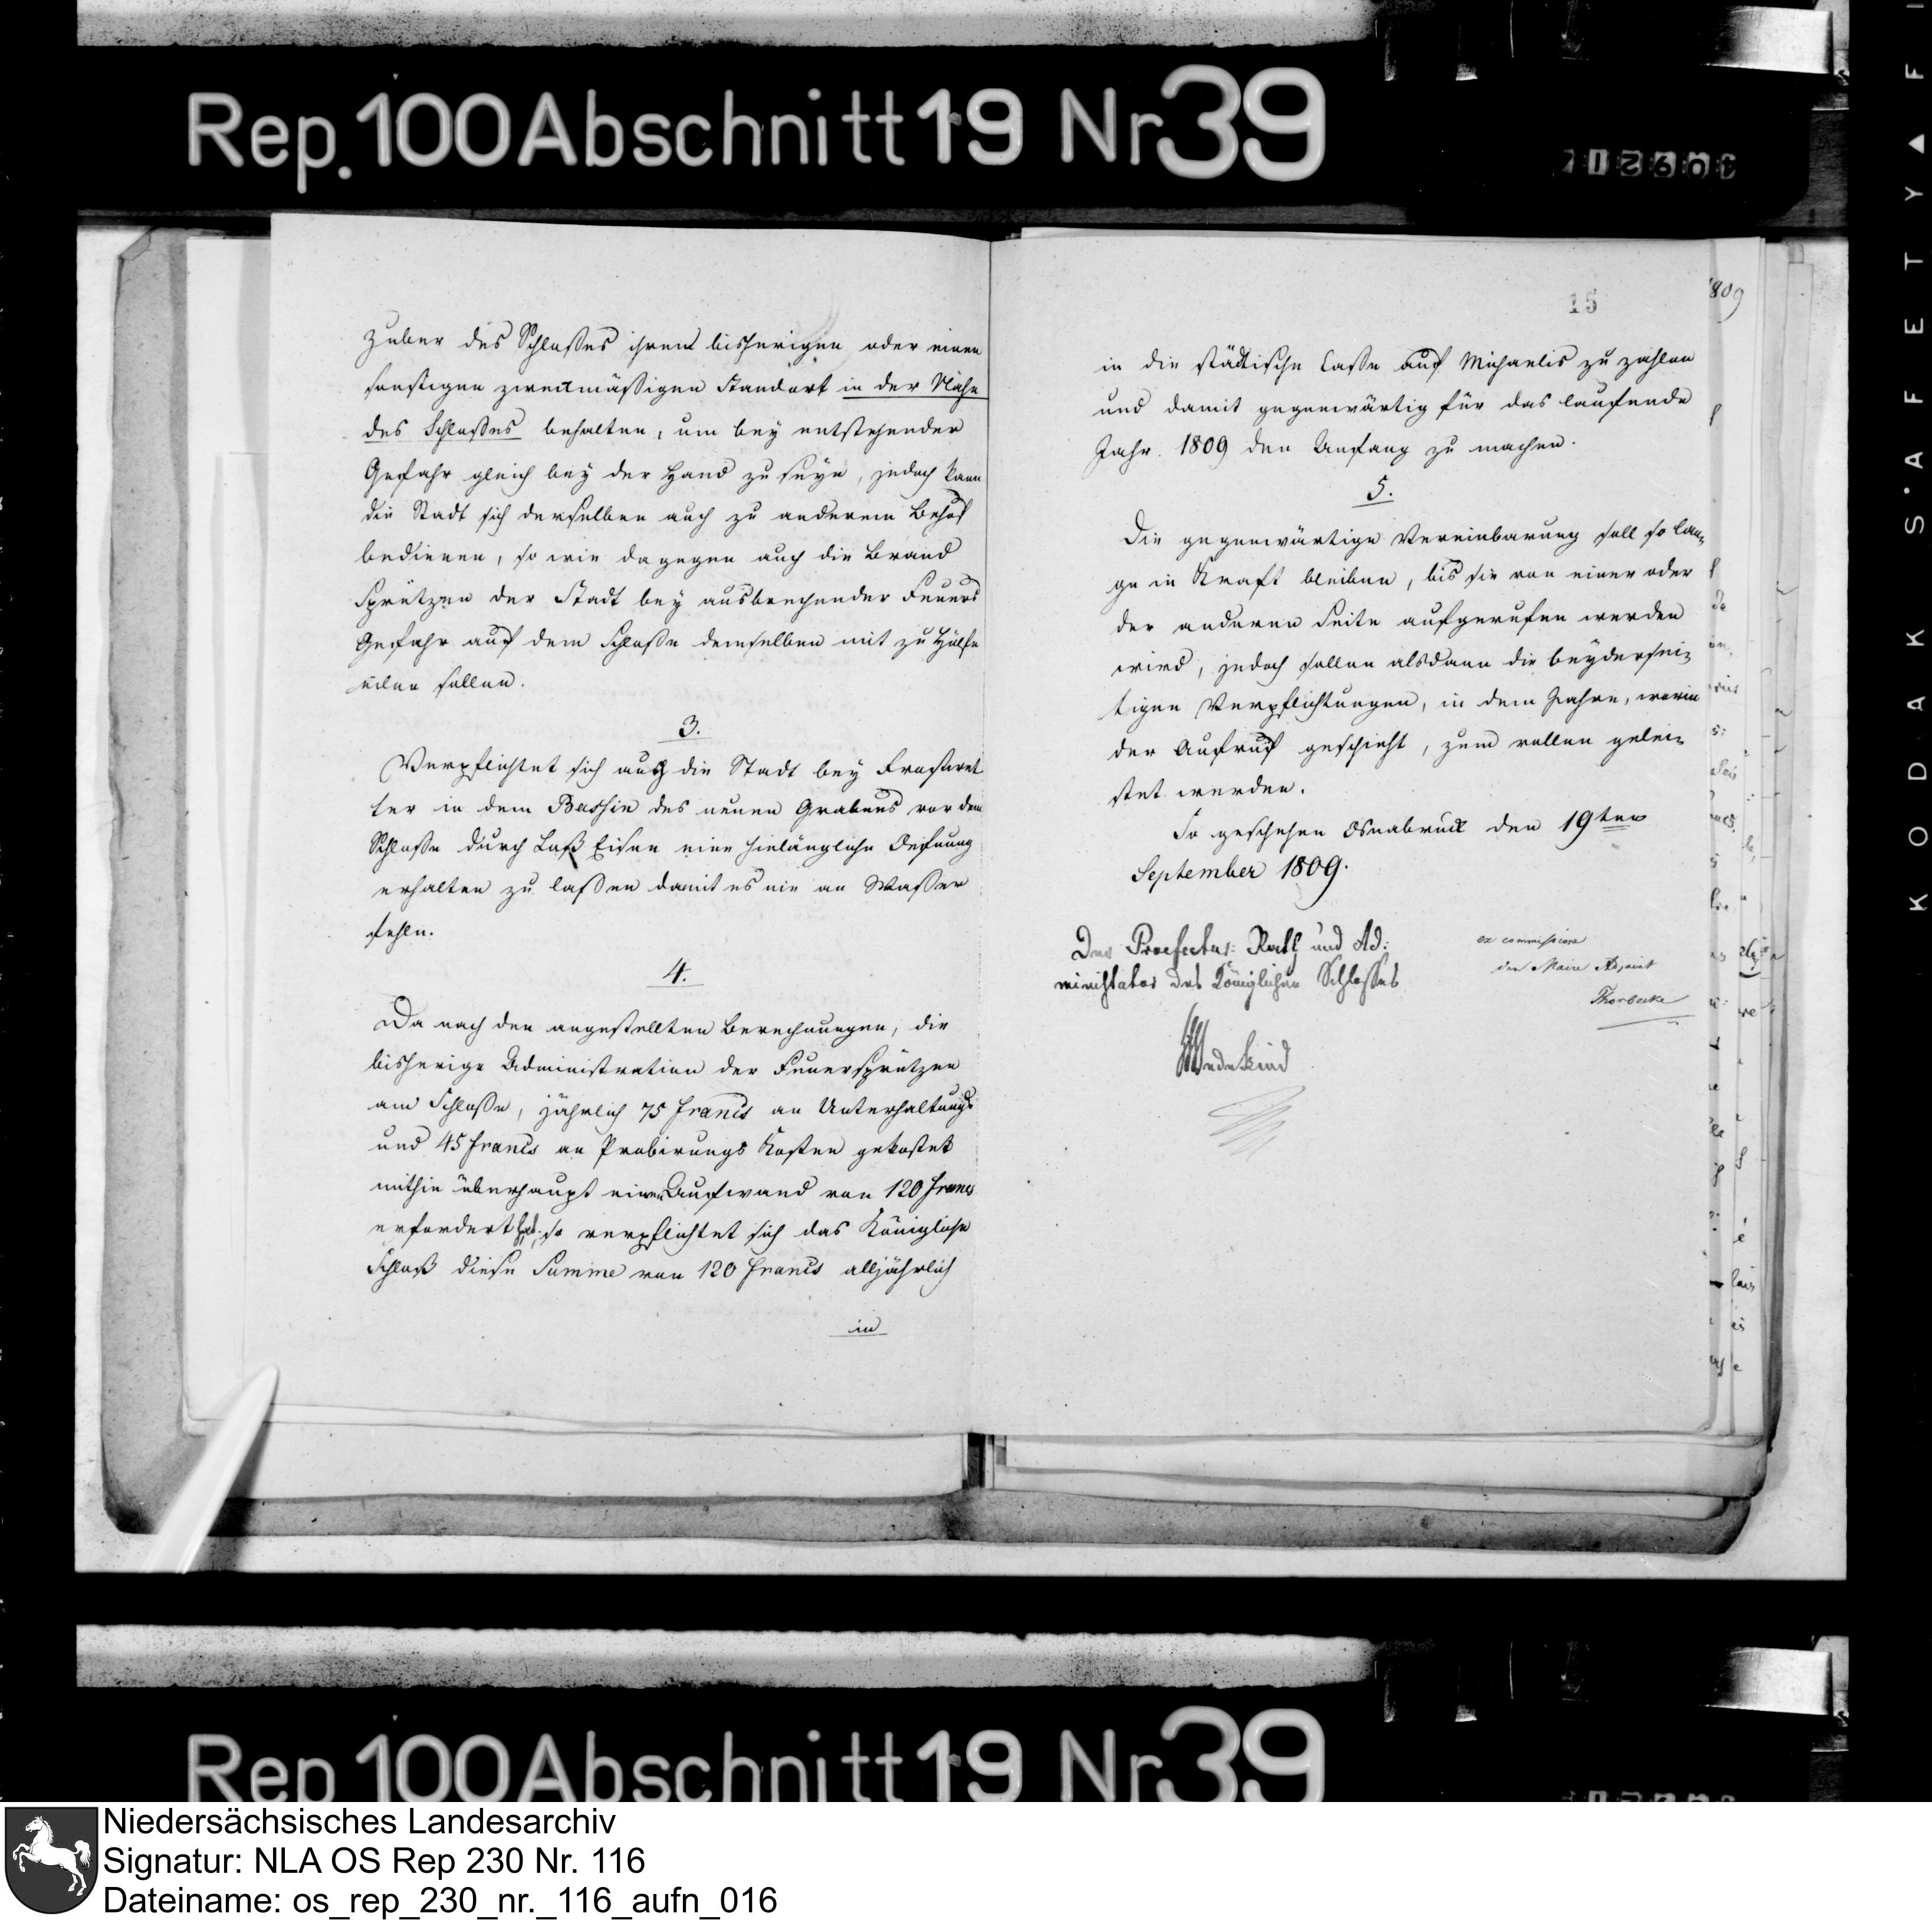 Rep. 100 Abschnitt 19 Nr 39
Zuber des Schloßes ihren bisherigen oder einen
sonstigen zweckmäßigen Standort in der Nähe
des Schloßes behalten, um bey entstehender
Gefahr gleich bey der Hand zu seyn, jedoch kann
die Stadt sich derselben auch zu anderem Behuf
bedienen, so wie dagegen auch die Brand
Sprützen der Stadt bey ausbrechender Feuers
Gefahr auf dem Schloße demselben mit zu Hülfe
eilen sollen.
3.
Verpflichtet sich auch die Stadt bey Frostwet
ter in dem Bassin des neuen Grabens vor dem
Schloße durch Eisen eine hinlängliche Oefnung
erhalten zu laßen damit es nie an Waßer
fehle.
4.
Da nach den angestellten Berechnungen, die
bisherige Administration der Feuersprützen
am Schloße, jährlich 75 francs an Unterhaltungs
und 45 francs an Probirungs Kosten gekostet
mithin überhaupt einen Aufwand von 120 francs
erfordert hat, so verpflichtet sich das Königliche
Schloß diese Summe von 120 francs alljährlich
in
15
1809
in die städtische Casse auf Michaelis zu zahlen
und damit gegenwärtig für das laufende
Jahr 1809 den Anfang zu machen.
5.
Die gegenwärtige Vereinbarung soll so lan=
ge in Kraft bleiben, bis sie von einer oder
der anderen Seite aufgerufen werden
wird, jedoch sollen alsdann die beydersei=
tigen Verpflichtungen, in dem Jahre, worin
der Aufruf geschieht, zum vollen gelei=
stet werden.
So geschehen Osnabrück den 19ten
September 1809.
Der Praefectur: Rath und Ad:
ministrator des Königlichen Schlosses
Wedekind
ex commissione
der Maire Adjoint
Thorbecke
KODAK S·AFETY▲F
Rep 100 Abschnitt 19 Nr 39
Niedersächsisches Landesarchiv
Signatur: NLA OS Rep 230 Nr. 116
Dateiname: os_rep_230_nr._116_aufn_016